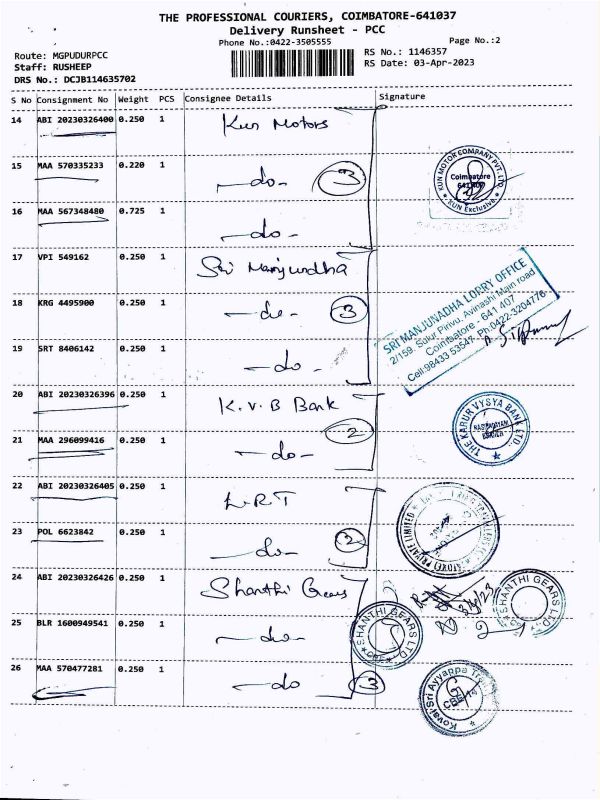 THE PROFESSIONAL COURIERS, COIMBATORE-641037
Delivery Runsheet - PCC
Phone No.:0422-3505555
Page No.:2
Route: MGPUDURPCC
Staff: RUSHEEP
DRS No.: DCJB114635702
RS No.: 1146357
RS Date: 03-Apr-2023
S No Consignment No Weight PCS Consignee Details Signature
14 ABI 20230326400 0.250 1 Kun Motors
15 MAA 570335233 0.220 1 -do- 3
KUN MOTOR COMPANY PVT. LTD.
Coimbatore
641 407
* KUN Exclusive. *
16 MAA 567348480 0.725 1 -do-
17 VPI 549162 0.250 1 Sri Manjundha
18 KRG 4495900 0.250 1 -do- 3
SRI MANJUNADHA LORRY OFFICE
2/159, Sulur Pirivu, Avinashi Main road
Coimbatore - 641 407
Cell:98433 53547, Ph:0422-3204776
19 SRT 8406142 0.250 1 -do-
20 ABI 20230326396 0.250 1 K.V.B Bank
THE KARUR VYSYA BANK LTD.
21 MAA 296099416 0.250 1 -do- 2
22 ABI 20230326405 0.250 1 L.R.T
PRIVATE LIMITED
23 POL 6623842 0.250 1 -do- 2
24 ABI 20230326426 0.250 1 Shanthi Gears
3/4/23
SHANTHI GEARS LTD.
25 BLR 1600949541 0.250 1 -do- 2
SHANTHI GEARS LTD.
CBE
26 MAA 570477281 0.250 1 -do 3
Kovai Sri Ayyappa
CBE-14